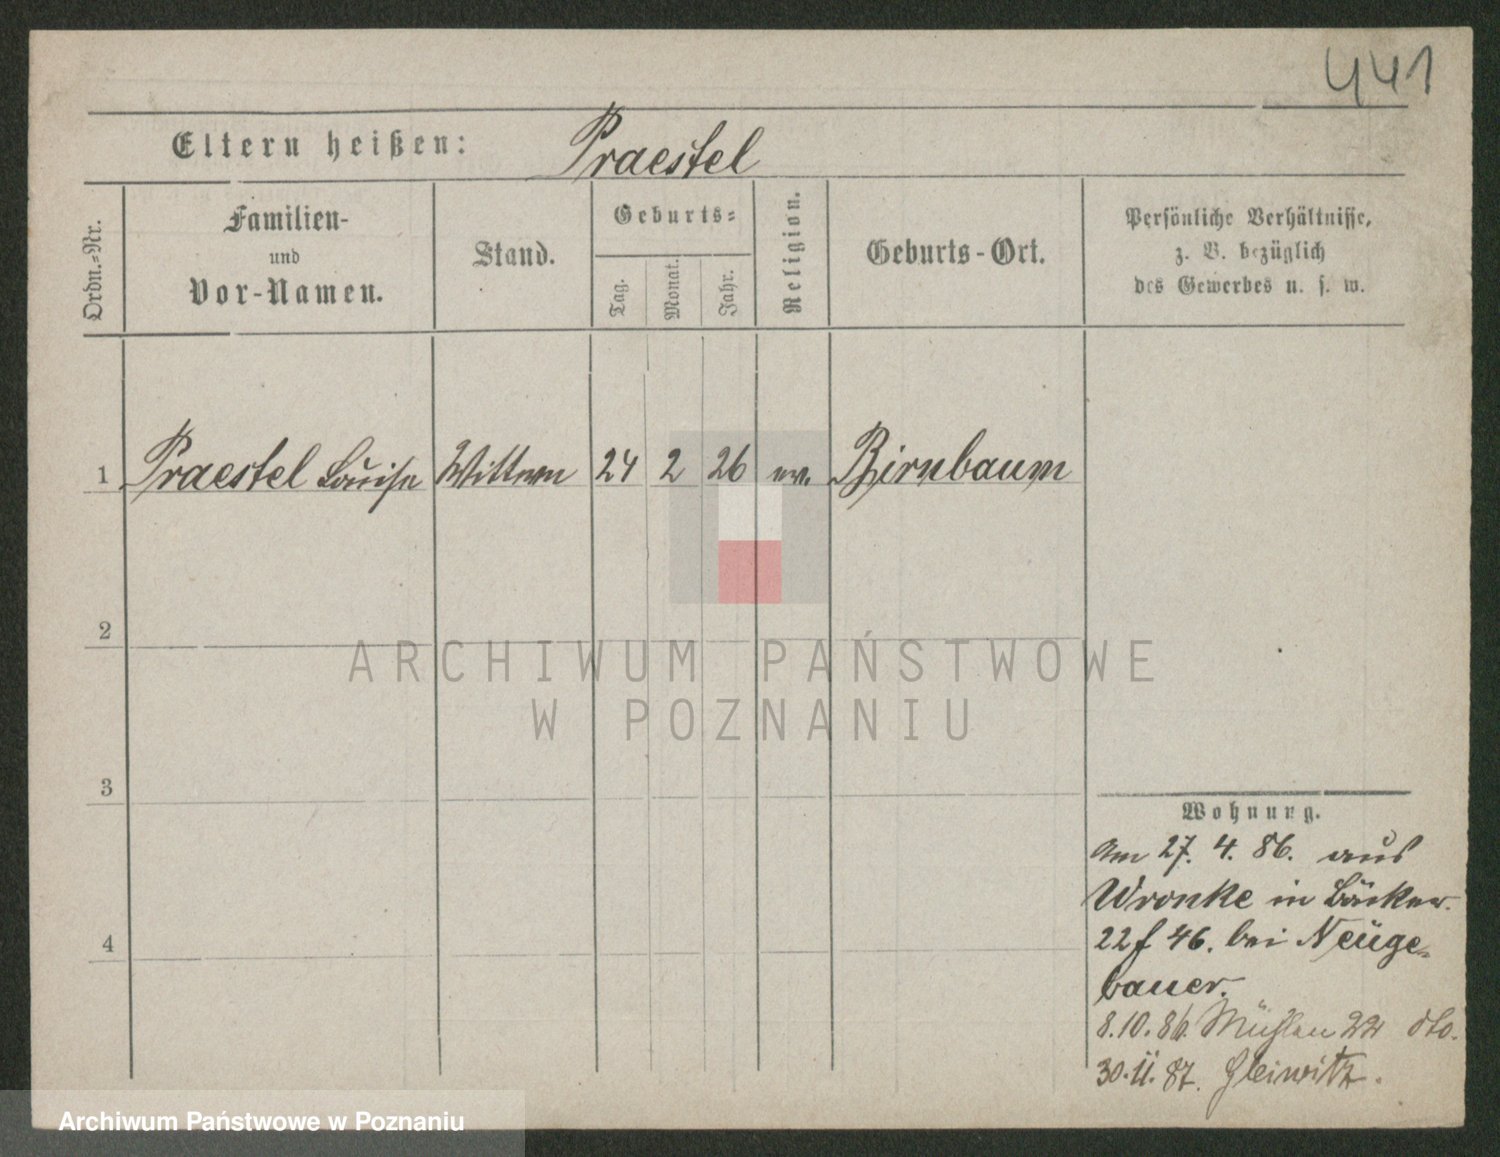 441
Eltern heißen: Praestel
Ordn.-Nr.
Familien-
und
Vor-Namen.
Stand.
Geburts-
Tag.
Monat.
Jahr.
Religion.
Geburts-Ort.
Persönliche Verhältnisse,
z. B. bezüglich
des Gewerbes u. s. w.
1 Praestel Louise Wittwe 24 2 26 ev. Birnbaum
2
3
4
Wohnung.
Am 27. 4. 86. aus
Wronke in Bäcker
22 f 46. bei Neuge-
bauer.
8.10.86. Mühlen 22 dto.
30.11.87. Gleiwitz.
ARCHIWUM PAŃSTWOWE
W POZNANIU
Archiwum Państwowe w Poznaniu